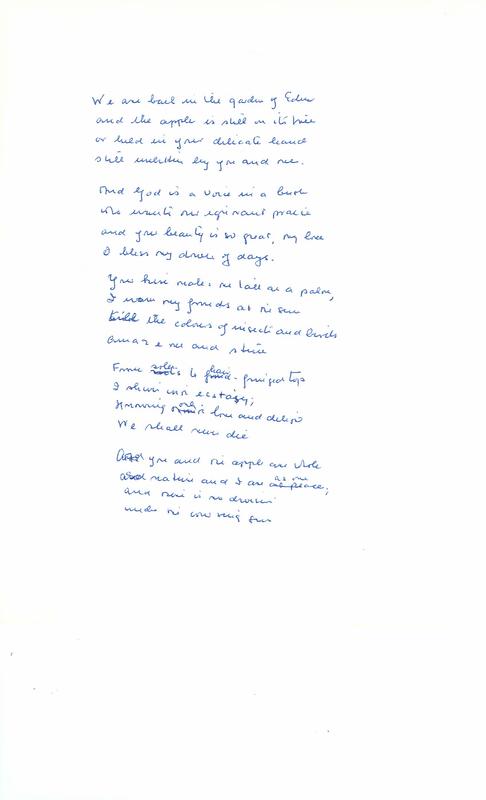 We are back in the garden of Eden
and the apple is still on its tree
or held in your delicate hand
still unbitten by you and me.
And God is a voice in a bush
who wants our ignorant praise
and your beauty is so great, my love
I bless my dower of days.
Your kiss makes me tall as a palm,
I warm my fronds at the sun
the colours of insects and birds
amaze me and
From soles to hair-fringed top
I shiver in ecstasy;
Knowing only love and delight
We shall never die
And you and the apple are whole
and nature and I are as one;
and there is no division
under the unmoving sun